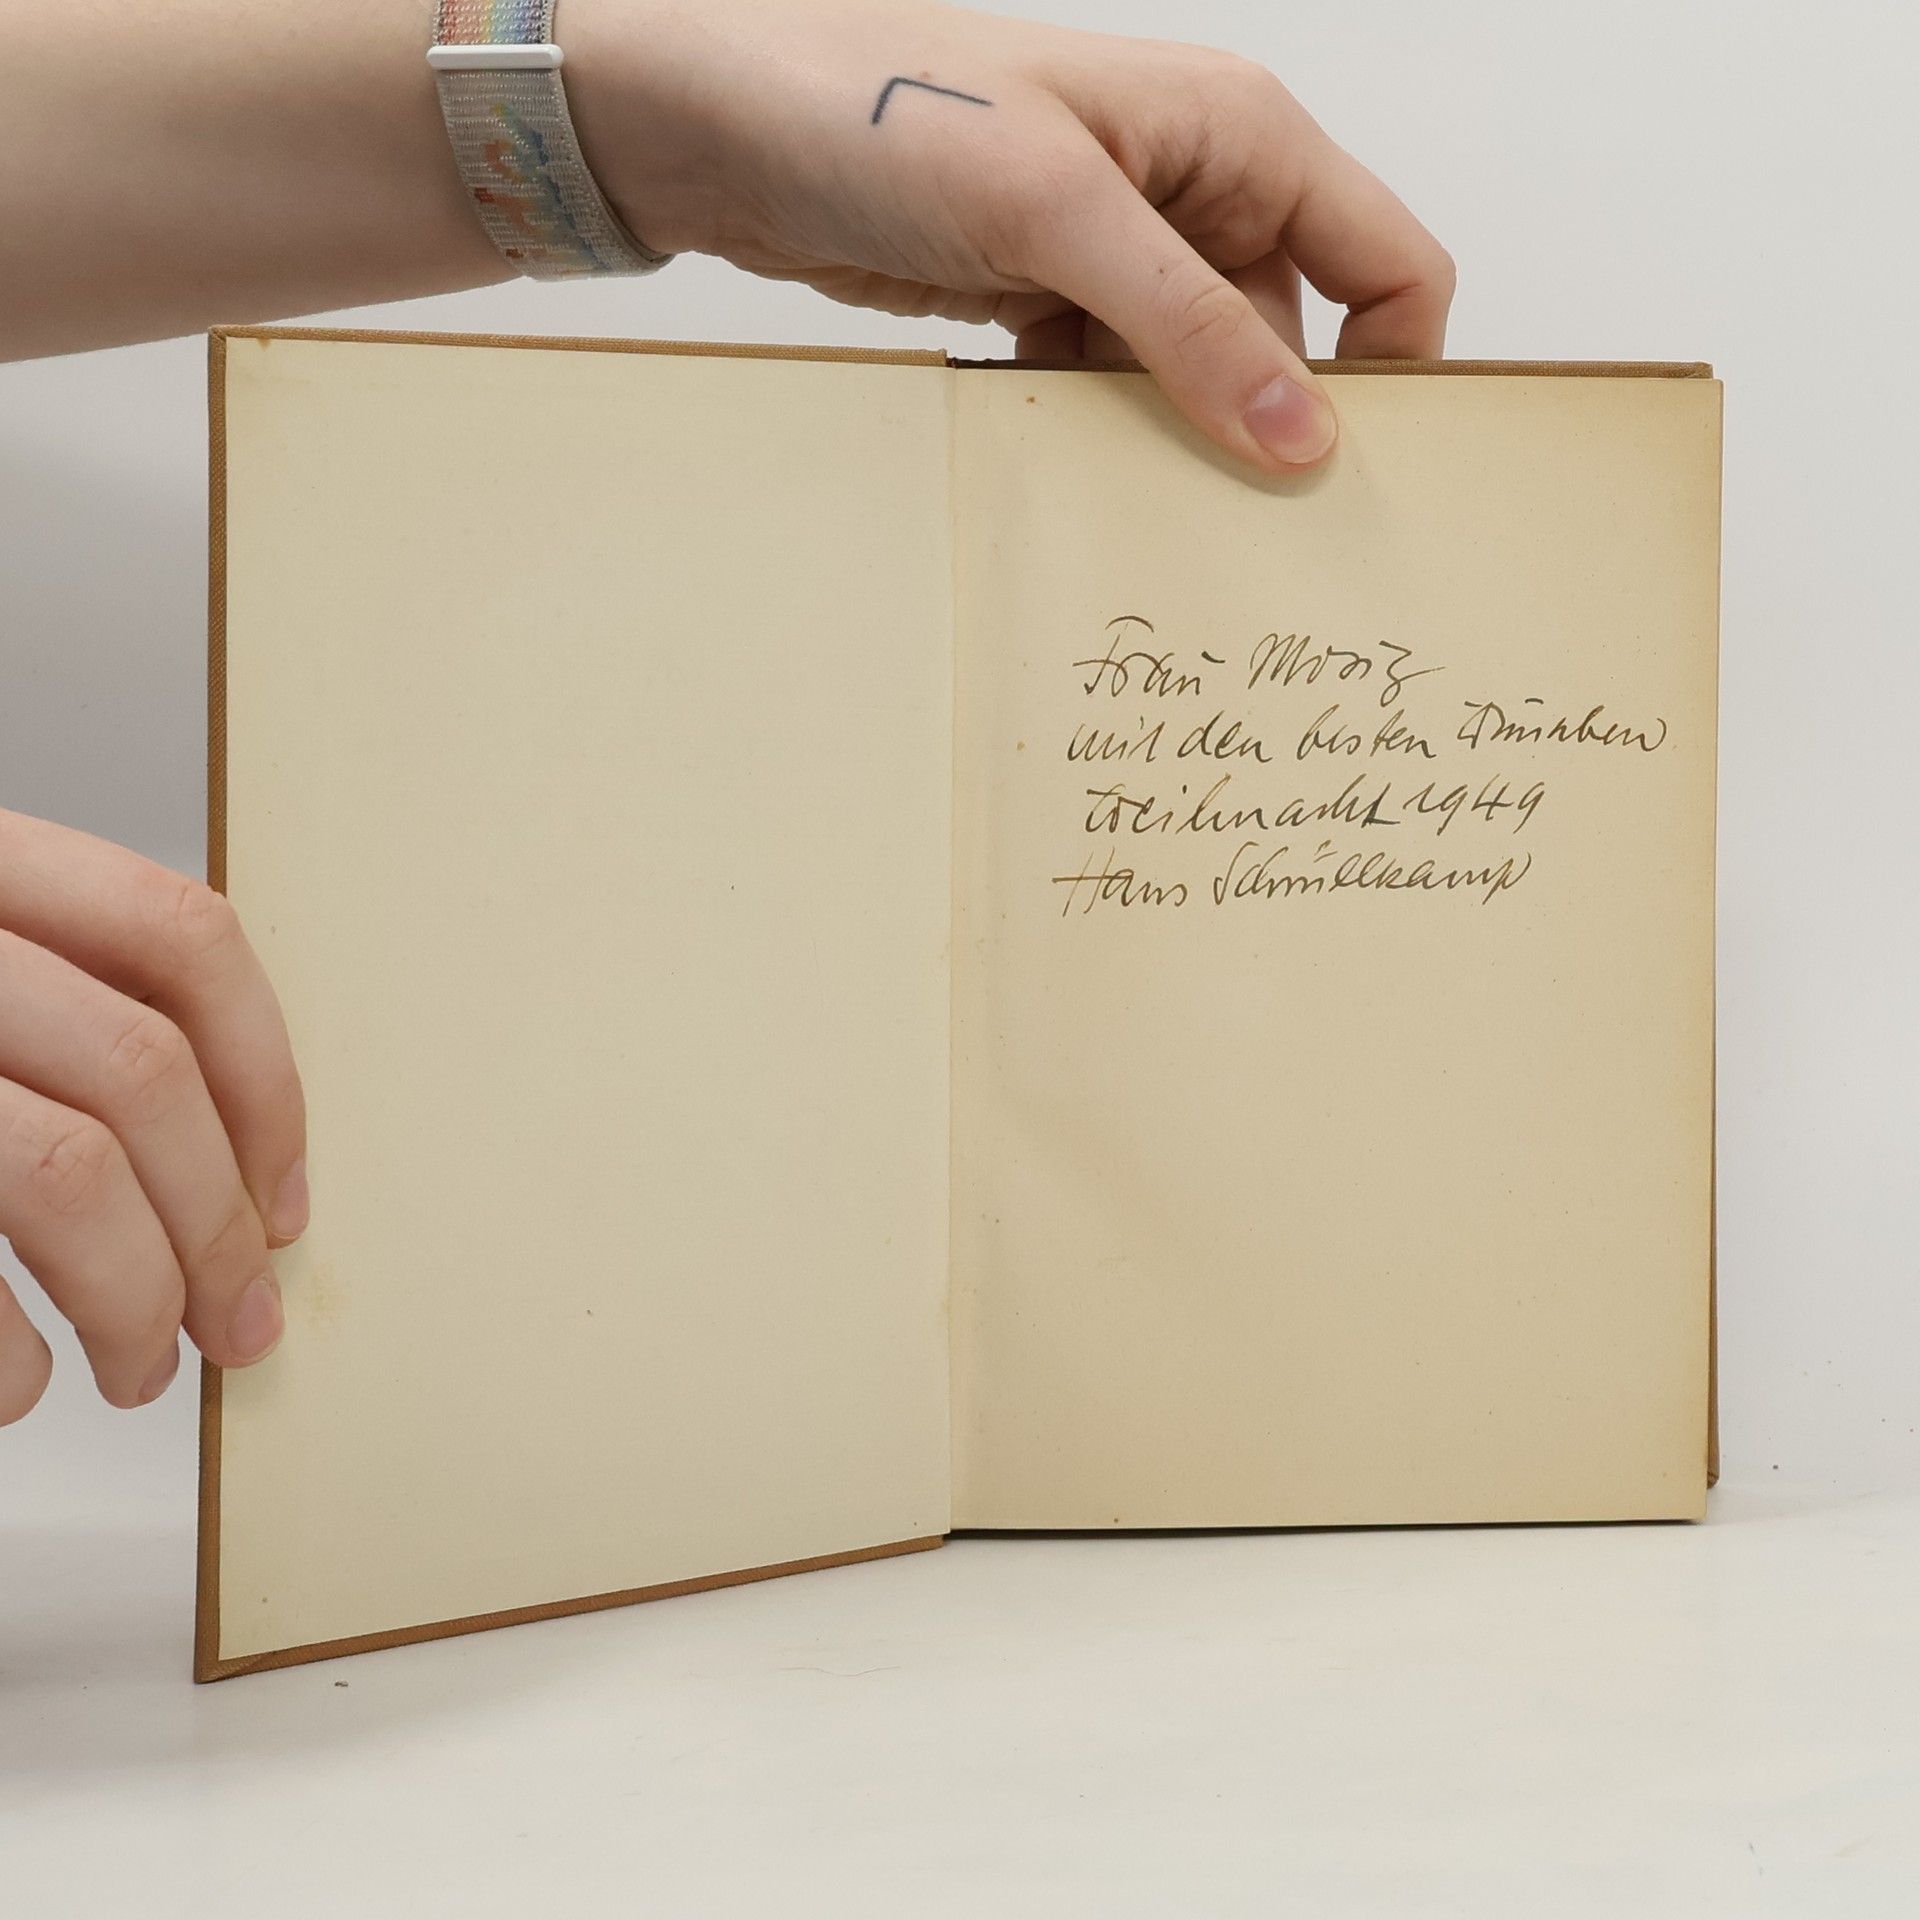 Frau Moriz
mit den besten Wünschen
Weihnacht 1949
Hans Schmüllkamp